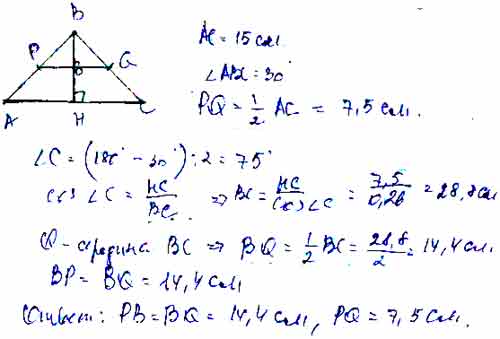 B
P
Q
A
H
C
AC = 15 см.
∠ABC = 30°
PQ = 1/2 AC = 7,5 см.
∠C = (180° - 30°) : 2 = 75°
cos ∠C = HC/BC ⇒ BC = HC/cos∠C = 7,5/0,26 = 28,8 см
Q - середина BC ⇒ BQ = 1/2 BC = 28,8/2 = 14,4 см.
BP = BQ = 14,4 см
Ответ: PB = BQ = 14,4 см, PQ = 7,5 см.